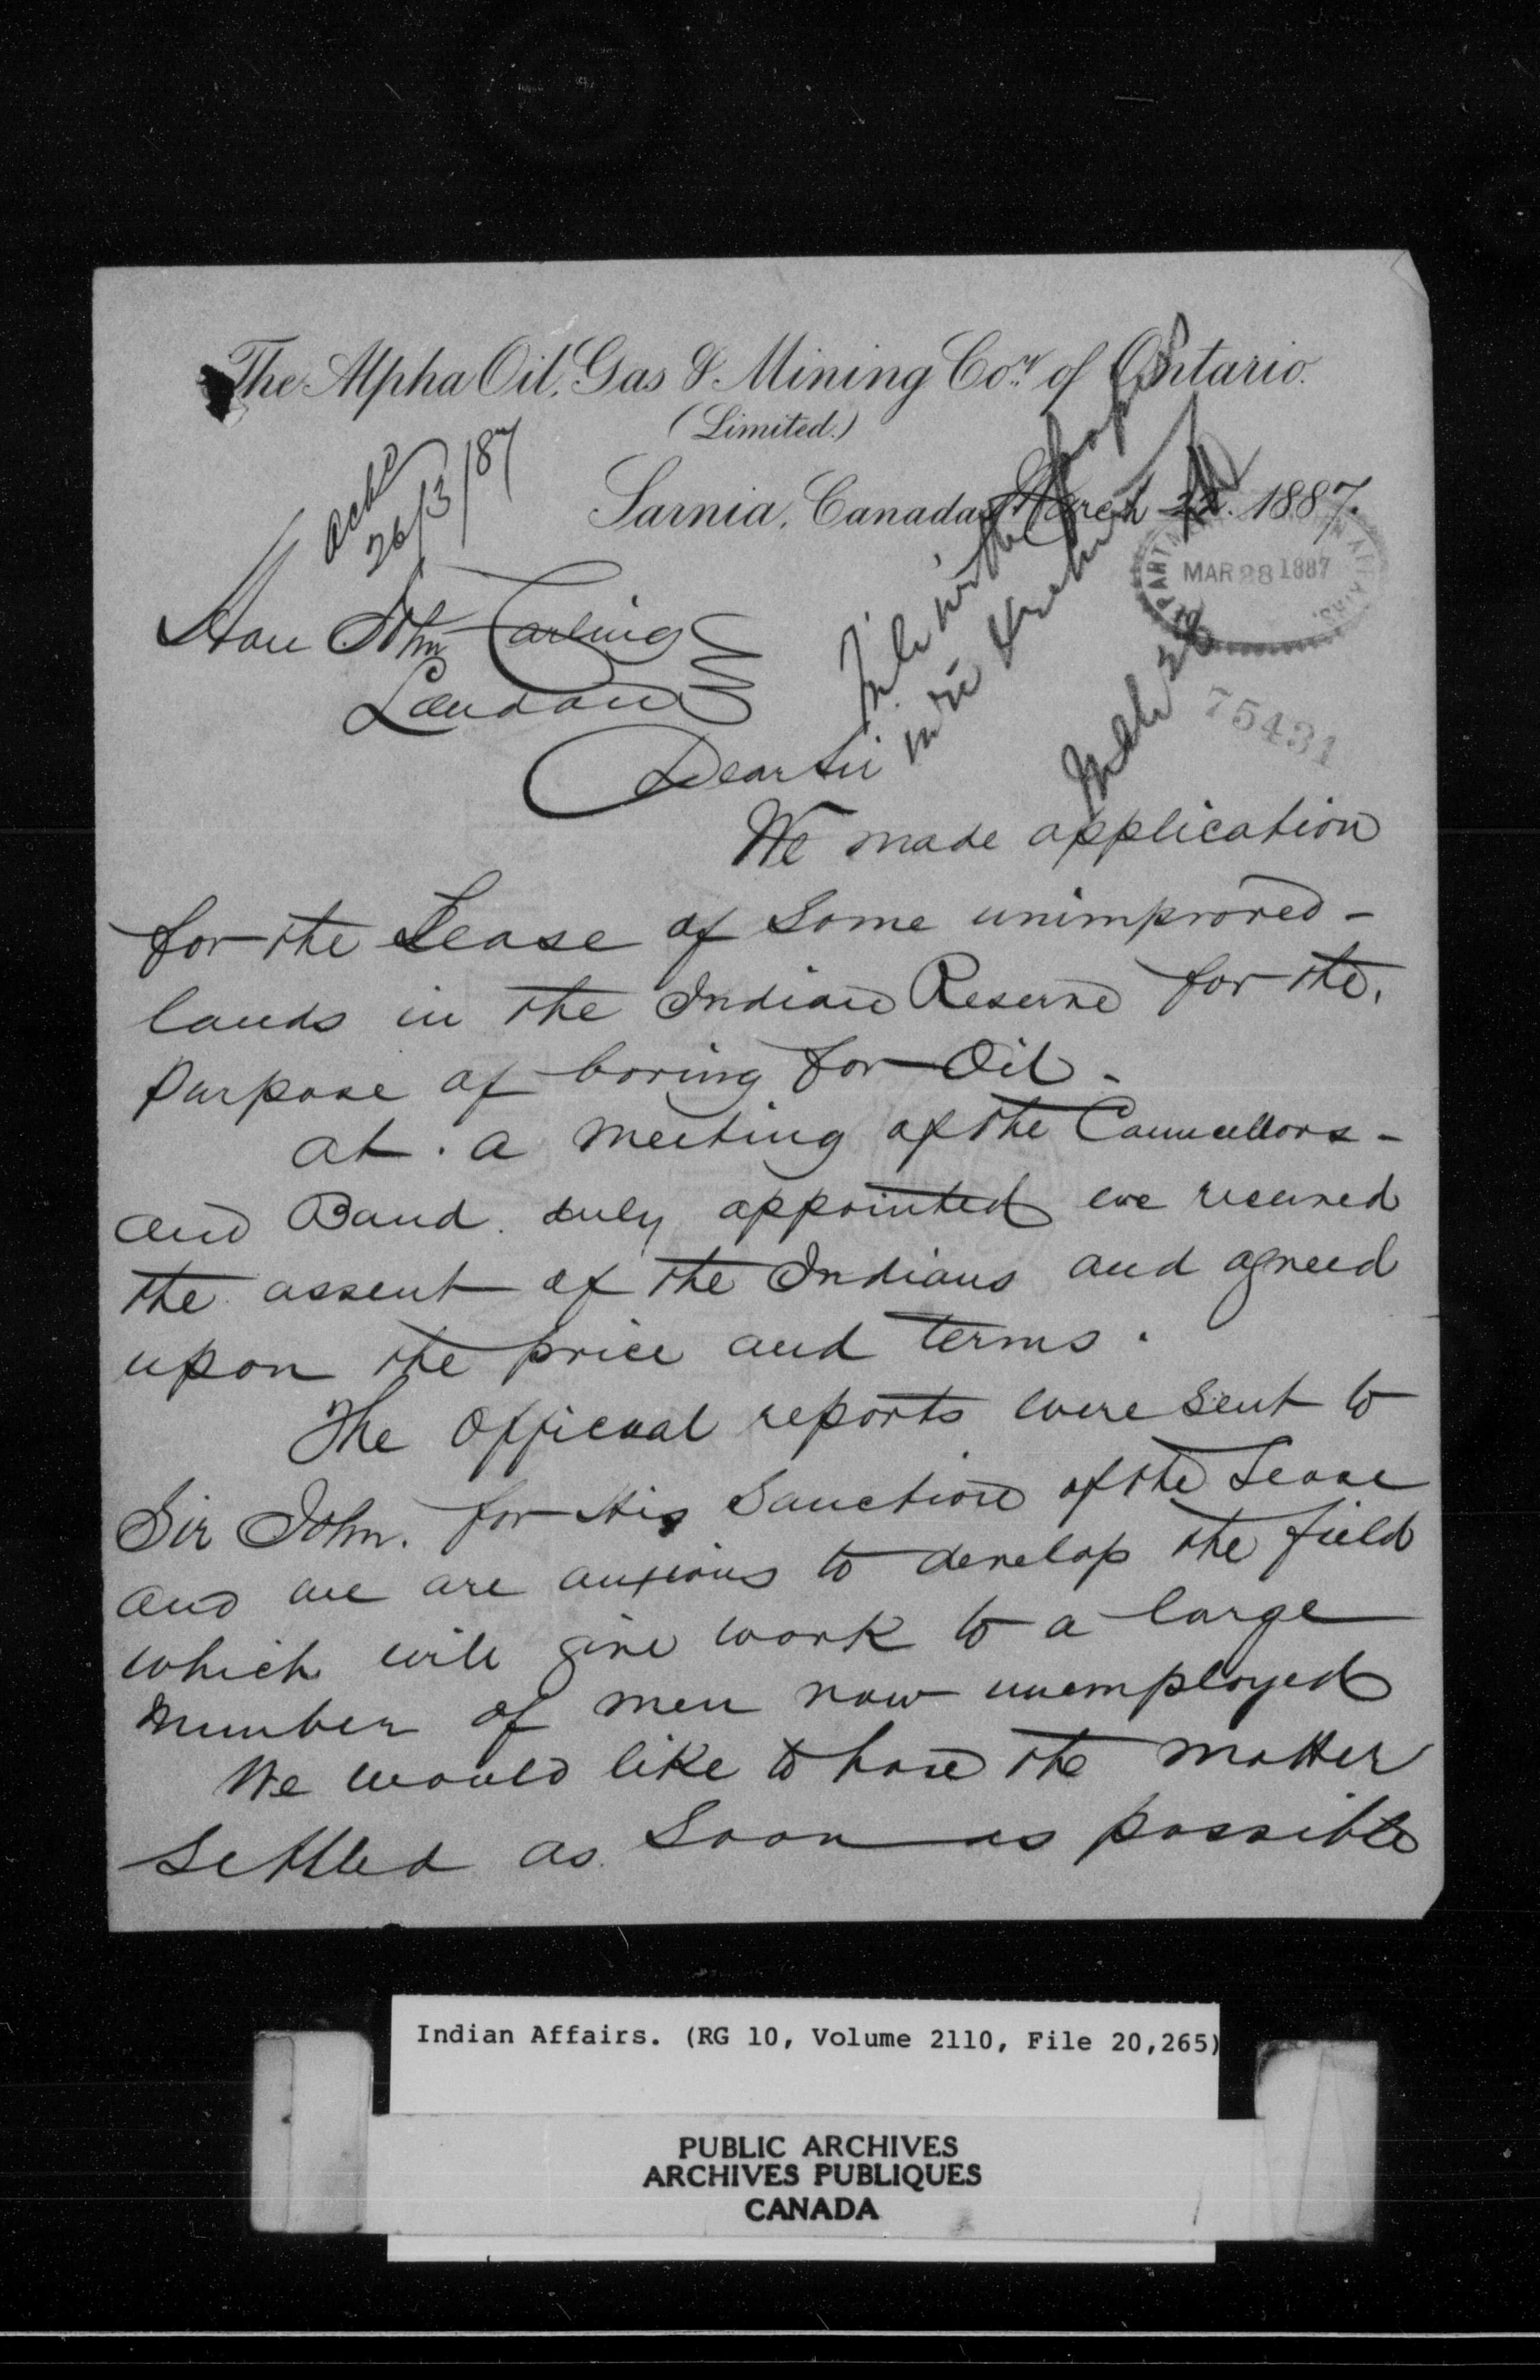 The Alpha Oil, Gas & Mining Coy. of Ontario.
(Limited.)
Sarnia, Canada, March 22. 1887.
Ackd
26/3/87
MAR 28 1887
75431
File with the papers
in re
Hon John Carling
London
Dear Sir
We made application
for the Lease of Some unimproved -
lands in the Indian Reserve for the.
Purpose of boring for Oil -
at . a meeting of the Councellors -
and Band. duly appointed we received
the assent of the Indians and agreed
upon the price and terms .
The Official reports were sent to
Sir John. for His Sanction of the Lease
and we are anxious to develop the field
which will give work to a large
Number of men now unemployed
We would like to have the matter
Settled as. Soon as possible
Indian Affairs. (RG 10, Volume 2110, File 20,265)
PUBLIC ARCHIVES
ARCHIVES PUBLIQUES
CANADA